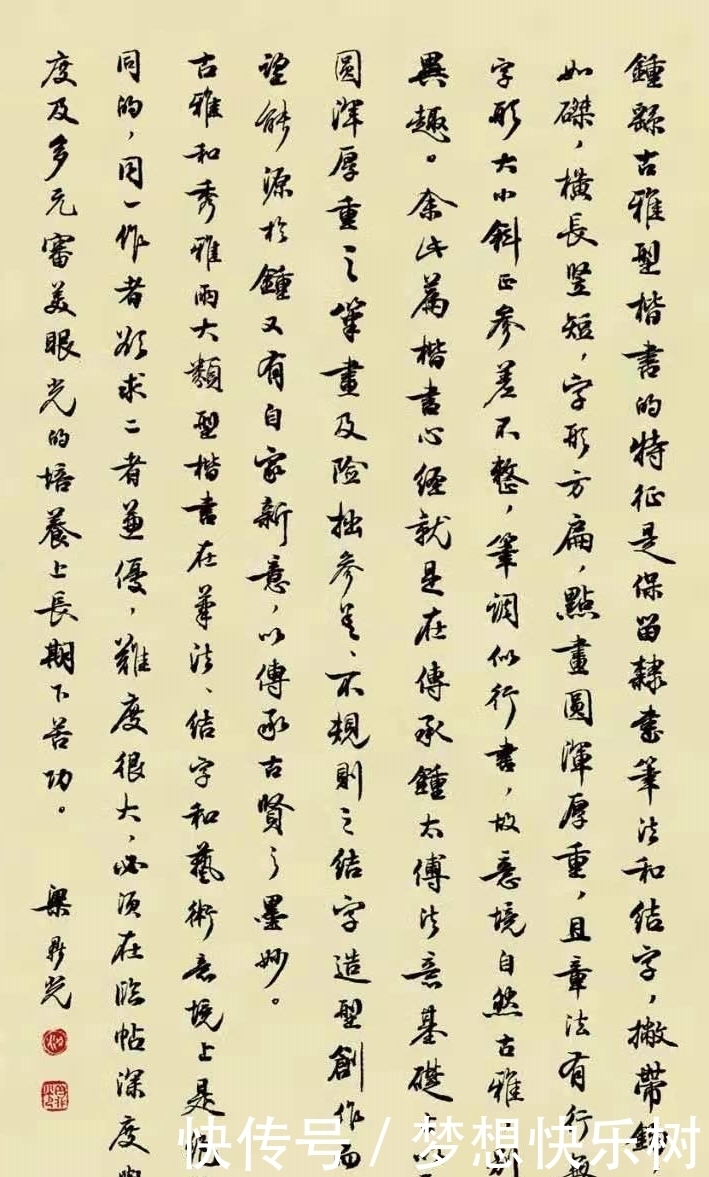 鍾繇古雅型楷書的特征是保留隸書筆法和結字，撇帶鉤，
如磔，橫長竖短，字形方扁，點畫圓渾厚重，且章法有行無
字形大小斜正參差不整，筆調似行書，故意境自然古雅
異趣。余此篇楷書心經就是在傳承鍾太傅法意基礎上以
圓渾厚重之筆畫及险拙參差、不規則之结字造型創作而
望能源於鍾又有自家新意，以傳承古賢之墨妙。
古雅和秀雅兩大類型楷書在筆法、结字和藝術意境上是
同的，同一作者欲求二者兼優，難度很大，必須在臨帖深度與
度及多元審美眼光的培養上長期下苦功。
梁鼎光
快传号/梦想快乐树